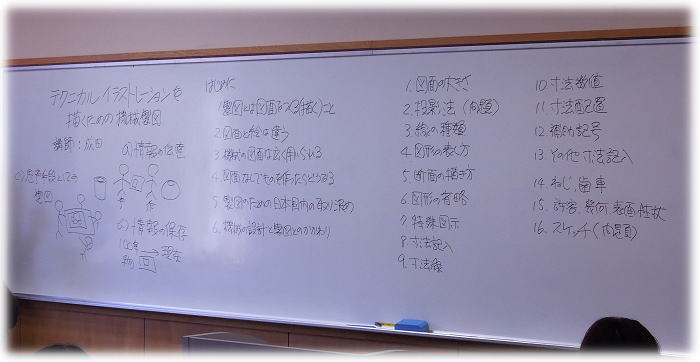 テクニカルイラストレーションを
描くための機械製図
講師:
a)情報の伝達
c)思考手段としての
製図
b)情報の保存
100年
前
現在
はじめに
1.製図とは図面をつくる(描く)こと
2.図面と絵は違う
3.機械の図面は広く用いられる
4.図面なしでものを作ったらどうなる
5.製図のための日本国内の取り決め
6.機械の設計と製図とのかかわり
1.図面の大きさ
2.投影法(内題)
3.線の種類
4.図形の表し方
5.断面の描き方
6.図形の省略
7.特殊図示
8.寸法記入
9.寸法線
10.寸法数値
11.寸法配置
12.補助記号
13.その他寸法記入
14.ねじ,歯車
15.許容,幾何,表面性状
16.スケッチ(内題)